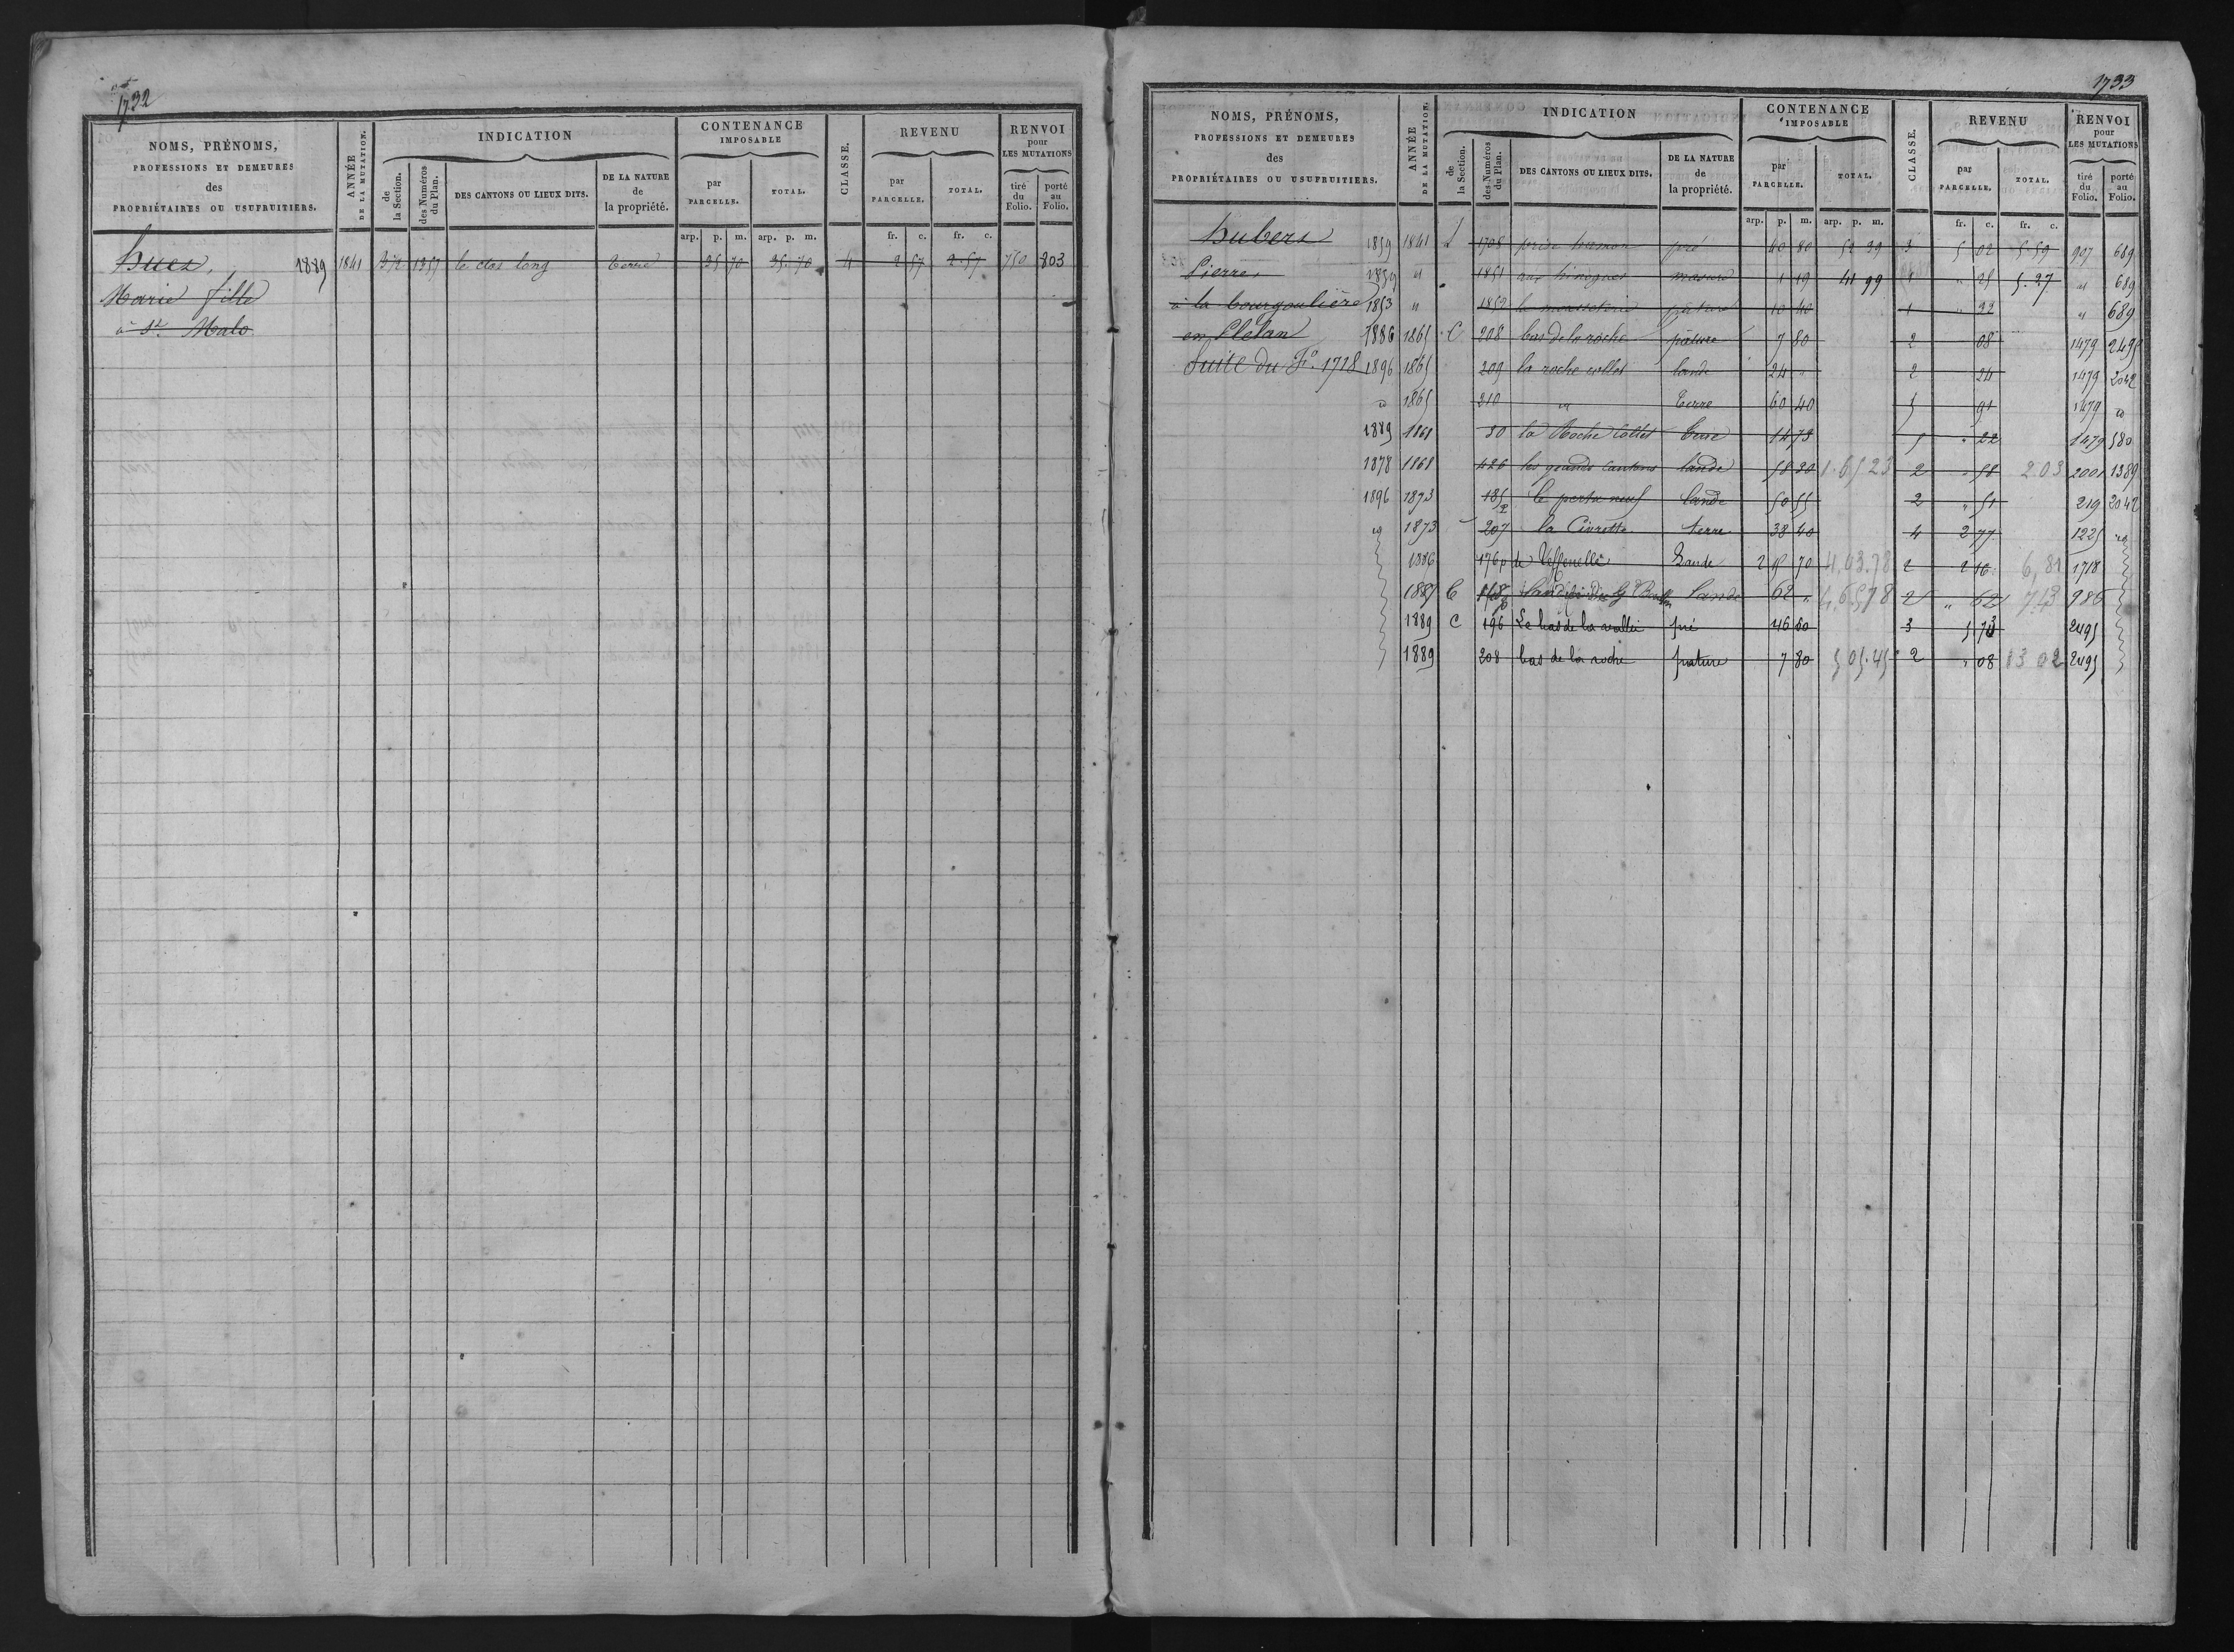 1732
NOMS, PRÉNOMS, PROFESSIONS ET DEMEURES des PROPRIÉTAIRES OU USUFRUITIERS.
ANNÉE DE LA MUTATION.
INDICATION
de la Section.
des Numéros du Plan.
DES CANTONS OU LIEUX DITS.
DE LA NATURE de la propriété.
CONTENANCE IMPOSABLE
par PARCELLE.
TOTAL.
CLASSE.
REVENU
par PARCELLE.
TOTAL.
RENVOI pour LES MUTATIONS
tiré du Folio.
porté au Folio.
arp. p. m. arp. p. m. fr. c. fr. c.
huez, 1889 1841 1357 le clos long terre 35 70 35 70 4 2 57 2.57 750 803
Marie fille
à St. Malo
1733
NOMS, PRÉNOMS, PROFESSIONS ET DEMEURES des PROPRIÉTAIRES OU USUFRUITIERS.
ANNÉE DE LA MUTATION.
INDICATION
de la Section.
des Numéros du Plan.
DES CANTONS OU LIEUX DITS.
DE LA NATURE de la propriété.
CONTENANCE IMPOSABLE
par PARCELLE.
TOTAL.
CLASSE.
REVENU
par PARCELLE.
TOTAL.
RENVOI pour LES MUTATIONS
tiré du Folio.
porté au Folio.
arp. p. m. arp. p. m. fr. c. fr. c.
hubert 1859 1841 L 1708 pré 40 80 52 39 3 5 02 5.59 907 689
Pierre, 1859 " 1851 masure 1 19 41 99 " 5.27 " 689
à la bourgoulière 1853 " 1852 pature 10 40 1 " 22 " 689
en Plelan 1886 1865 C 208 bas de la roche pature 7 80 2 08 1479 2495
Suite du Fo. 1718 1896 1865 209 la roche collet lande 24 " 2 24 1479 2042
id 1865 210 id terre 60 40 5 91 1479 id
1889 1868 30 la Roche Collet terre 14 73 5 " 22 1479 580
1878 1868 426 les grands cantons lande 58 30 1.65 23 2 " 58 2.03 2001 1389
1896 1873 185p le pertu neuf lande 50 55 2 " 51 219 2042
id 1873 207 la Civrette terre 38 40 4 2 77 1225 id
1886 176p Lande 2 15 70 4,43.78 2 2 16 6,81 1718
1887 C lande 62 " 4,6578 2 " 62 7.43 986
1889 C 196 Le bas de la vallée pré 46 60 3 5 73 2495
1889 208 bas de la roche pature 7 80 5 05.45 2 " 08 13 02 2495